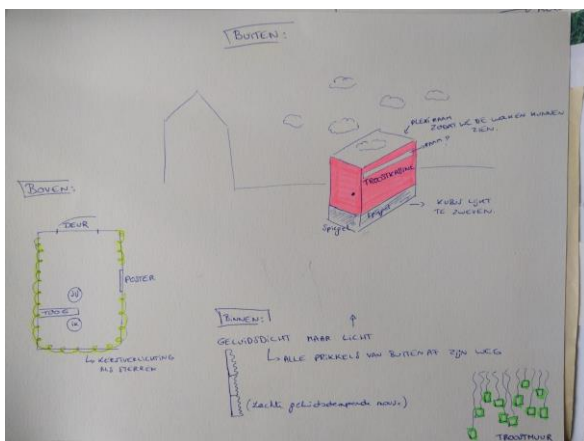 BUITEN:
PLEXIRAAM
ZODAT WE DE WOLKEN KUNNEN
ZIEN.
RAAM?
TROOSTKABINE
Spiegel
Spiegel
→ KUBUS LIJKT
TE ZWEVEN.
BOVEN:
DEUR
POSTER
TAFEL
↳ KERSTVERLICHTING
ALS STERREN
BINNEN:
GELUIDSDICHT MAAR LICHT
↳ ALLE PRIKKELS VAN BUITENAF ZIJN WEG
(zachte geluidsdempende
TROOSTMUUR